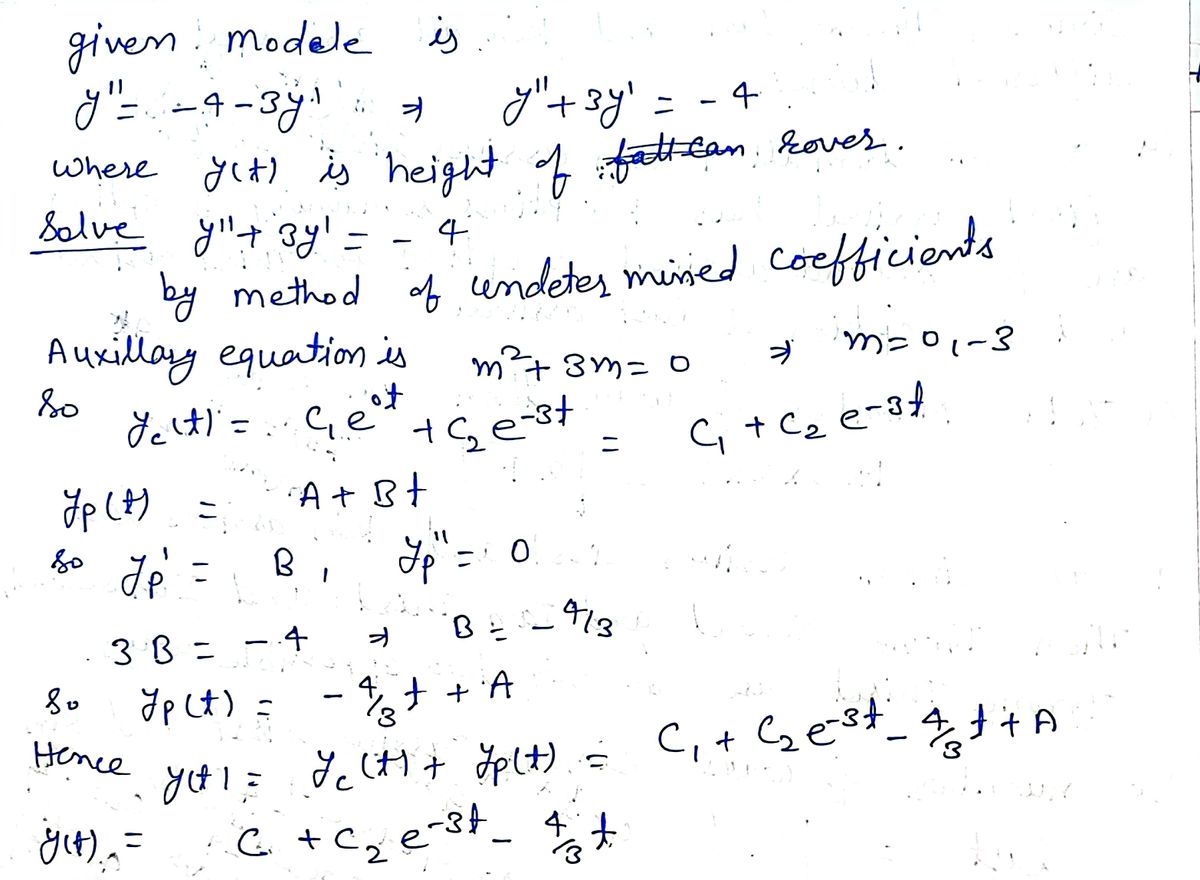 given modele is
y'' = -4-3y' ⇒ y''+3y' = -4
where y(t) is height of rover.
Solve y''+3y' = - 4
by method of undetermined coefficients
Auxillary equation is m²+3m=0 ⇒ m=0,-3
So y_c(t) = C₁e^{0t} + C₂e^{-3t} = C₁ + C₂ e^{-3t}
y_p(t) = A + Bt
So y_p' = B, y_p'' = 0
3B = -4 ⇒ B = -4/3
So y_p(t) = -4/3 t + A
Hence y(t) = y_c(t) + y_p(t) = C₁ + C₂e^{-3t} - 4/3 t + A
y(t) = C + C₂ e^{-3t} - 4/3 t